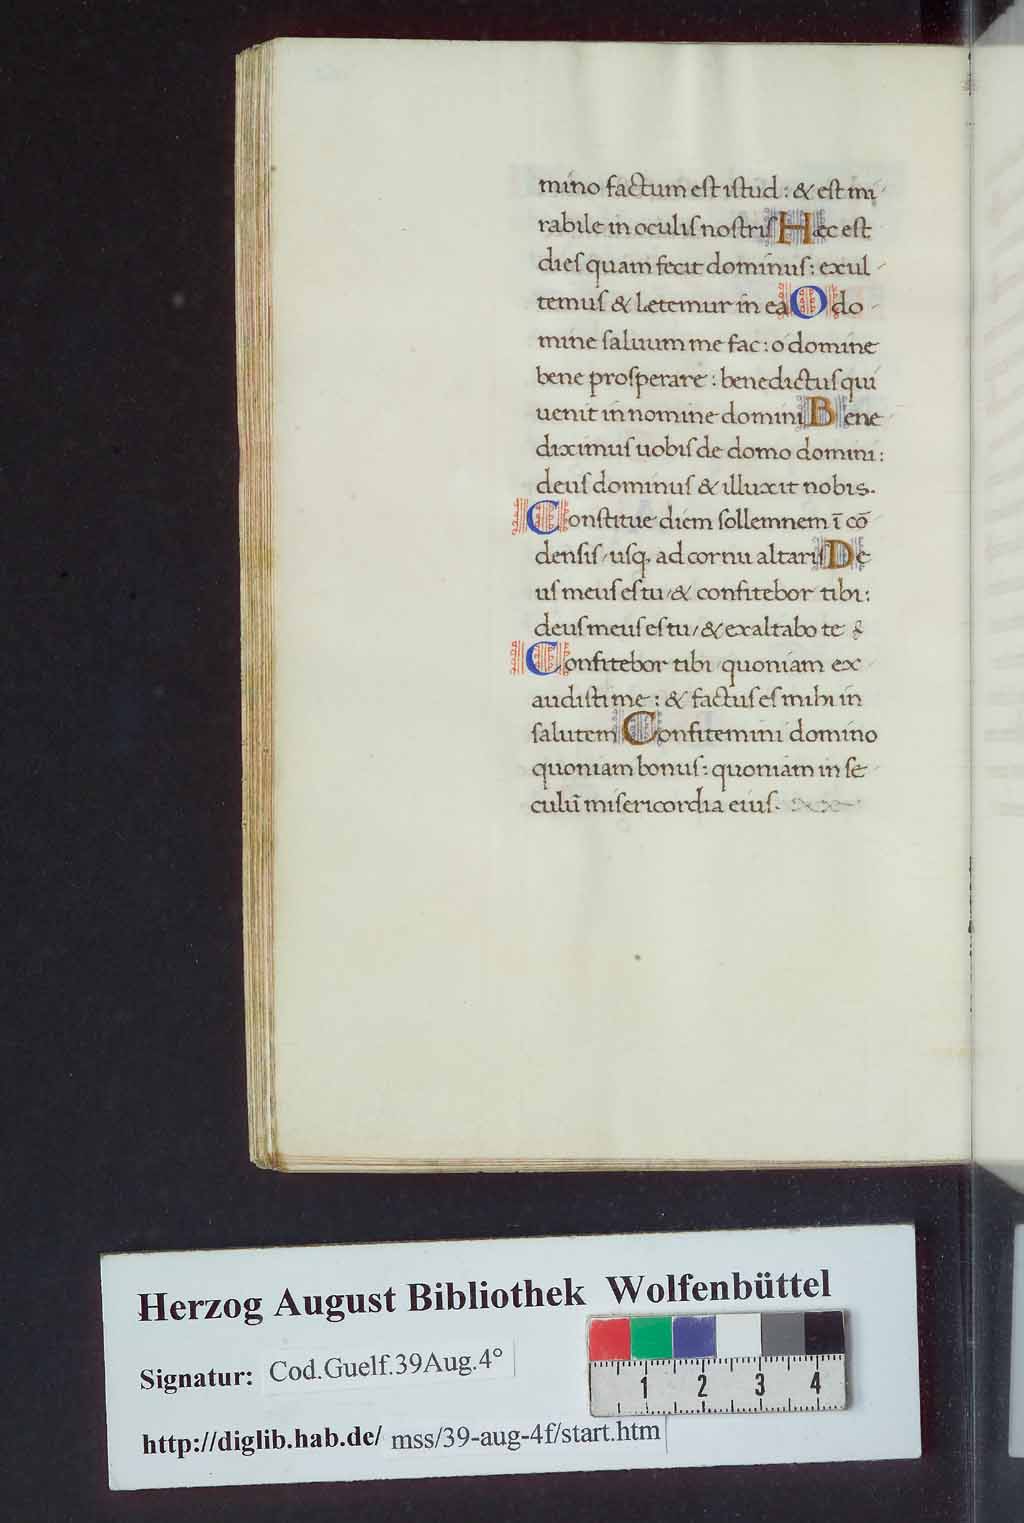 mino factum est istud: & est mi
rabile in oculis nostris Hęc est
dies quam fecit dominus: exul-
temus & letemur in ea O do-
mine saluum me fac: o domine
bene prosperare: benedictus qui
uenit in nomine domini Bene
diximus uobis de domo domini:
deus dominus & illuxit nobis.
Constitue diem sollemnem ī cō
densis, usq, ad cornu altaris De
us meus es tu, & confitebor tibi:
deus meus es tu, & exaltabo te
Confitebor tibi quoniam ex
audisti me: & factus es mihi in
salutem Confitemini domino
quoniam bonus: quoniam in se
culū misericordia eius.
Herzog August Bibliothek Wolfenbüttel
Signatur: Cod.Guelf.39Aug.4°
1 2 3 4
http://diglib.hab.de/ mss/39-aug-4f/start.htm